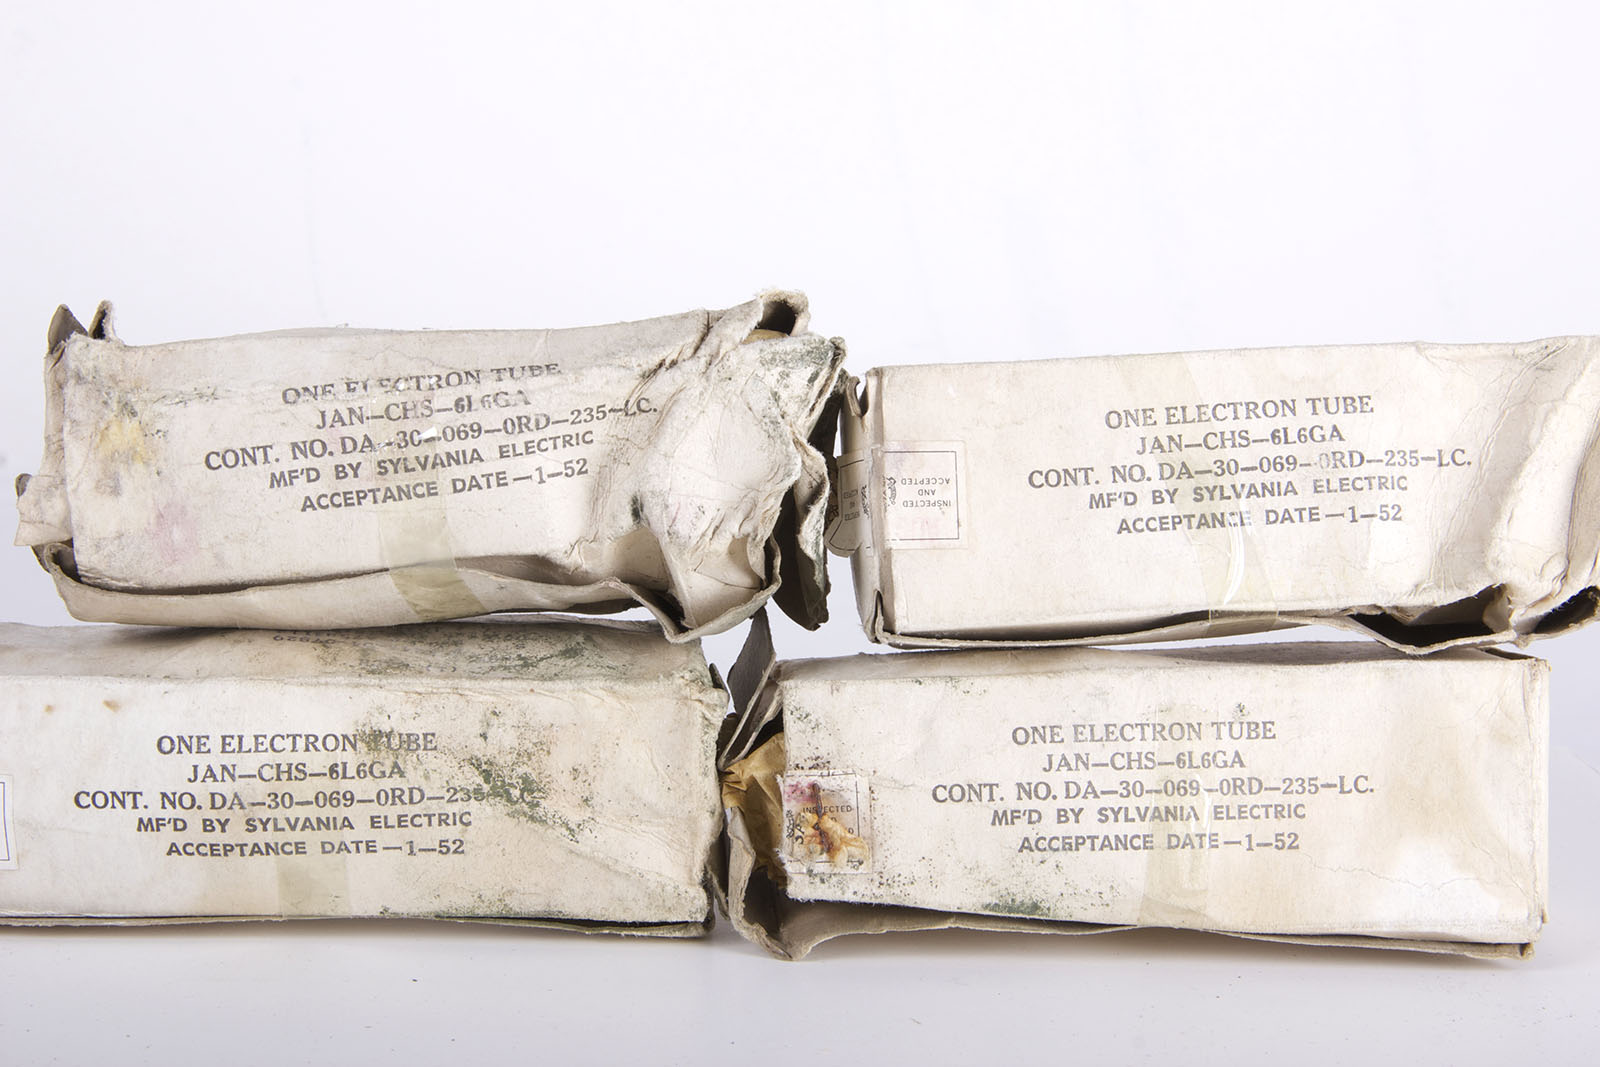 ONE ELECTRON TUBE
JAN-CHS-6L6GA
CONT. NO. DA-30-069-ORD-235-LC.
MF'D BY SYLVANIA ELECTRIC
ACCEPTANCE DATE-1-52
INSPECTED
AND
ACCEPTED
ONE ELECTRON TUBE
JAN-CHS-6L6GA
CONT. NO. DA-30-069-ORD-235-LC.
MF'D BY SYLVANIA ELECTRIC
ACCEPTANCE DATE-1-52
ONE ELECTRON TUBE
JAN-CHS-6L6GA
CONT. NO. DA-30-069-ORD-235-LC.
MF'D BY SYLVANIA ELECTRIC
ACCEPTANCE DATE-1-52
INSPECTED
ONE ELECTRON TUBE
JAN-CHS-6L6GA
CONT. NO. DA-30-069-ORD-235-LC.
MF'D BY SYLVANIA ELECTRIC
ACCEPTANCE DATE-1-52